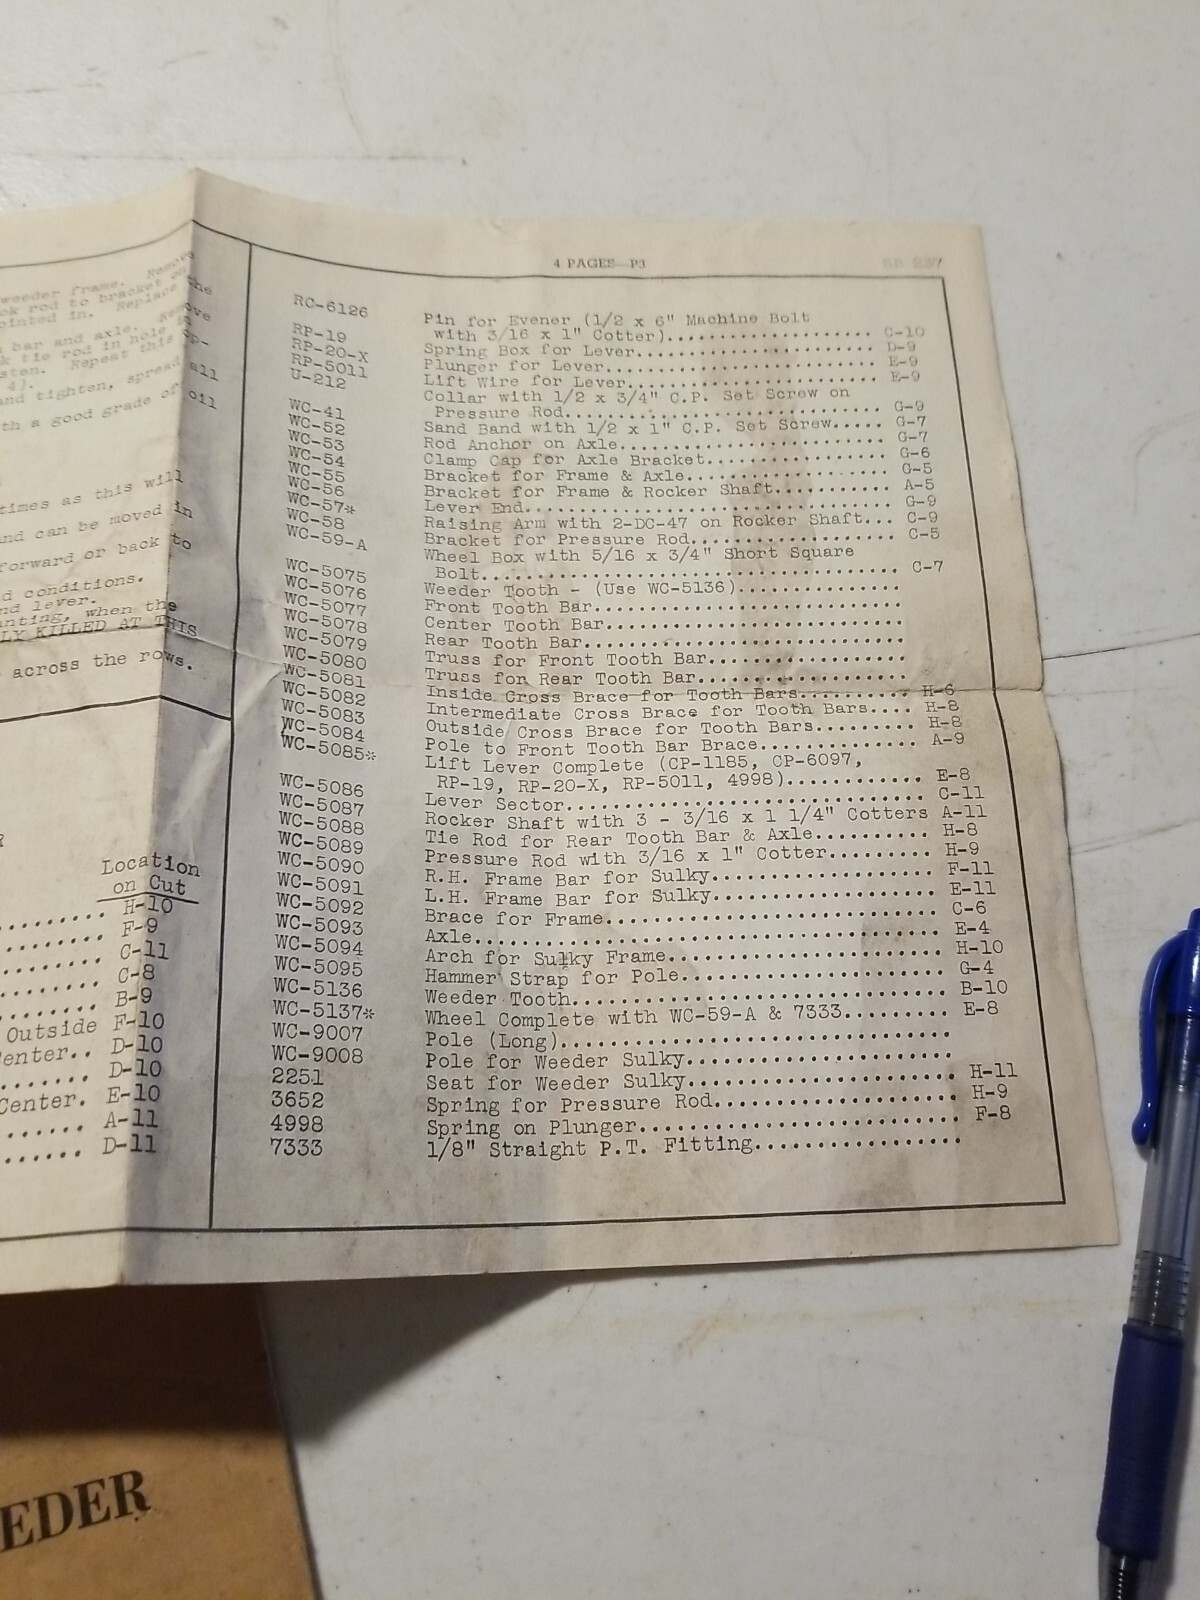 weeder frame. Remove
ok rod to bracket on the
ointed in. Replace
bar and axle. Remove
k tie rod in hole in
sten. Repeat this op-
4).
and tighten, spread all
th a good grade of oil
times as this will
and can be moved in
forward or back to
d conditions.
nd lever.
nting, when the
LY KILLED AT THIS
across the rows.
Location
on Cut
H-10
F-9
C-11
C-8
B-9
Outside F-10
enter.. D-10
D-10
Center. E-10
A-11
D-11
4 PAGES—P3 SB 237
RC-6126 Pin for Evener (1/2 x 6" Machine Bolt
with 3/16 x 1" Cotter)........................ C-10
RP-19 Spring Box for Lever........................ D-9
RP-20-X Plunger for Lever........................ E-9
RP-5011 Lift Wire for Lever........................ E-9
U-212 Collar with 1/2 x 3/4" C.P. Set Screw on
Pressure Rod........................ G-9
WC-41 Sand Band with 1/2 x 1" C.P. Set Screw..... G-7
WC-52 Rod Anchor on Axle........................ G-7
WC-53 Clamp Cap for Axle Bracket................ G-6
WC-54 Bracket for Frame & Axle.................. G-5
WC-55 Bracket for Frame & Rocker Shaft........... A-5
WC-56 Lever End........................ G-9
WC-57* Raising Arm with 2-DC-47 on Rocker Shaft... C-9
WC-58 Bracket for Pressure Rod.................. C-5
WC-59-A Wheel Box with 5/16 x 3/4" Short Square
Bolt........................ C-7
WC-5075 Weeder Tooth - (Use WC-5136)..............
WC-5076 Front Tooth Bar........................
WC-5077 Center Tooth Bar........................
WC-5078 Rear Tooth Bar........................
WC-5079 Truss for Front Tooth Bar.................
WC-5080 Truss for Rear Tooth Bar..................
WC-5081 Inside Cross Brace for Tooth Bars.......... H-6
WC-5082 Intermediate Cross Brace for Tooth Bars.... H-8
WC-5083 Outside Cross Brace for Tooth Bars......... H-8
WC-5084 Pole to Front Tooth Bar Brace.............. A-9
WC-5085* Lift Lever Complete (CP-1185, CP-6097,
RP-19, RP-20-X, RP-5011, 4998)............ E-8
WC-5086 Lever Sector........................ C-11
WC-5087 Rocker Shaft with 3 - 3/16 x 1 1/4" Cotters A-11
WC-5088 Tie Rod for Rear Tooth Bar & Axle.......... H-8
WC-5089 Pressure Rod with 3/16 x 1" Cotter......... H-9
WC-5090 R.H. Frame Bar for Sulky.................. F-11
WC-5091 L.H. Frame Bar for Sulky.................. E-11
WC-5092 Brace for Frame........................ C-6
WC-5093 Axle........................ E-4
WC-5094 Arch for Sulky Frame........................ H-10
WC-5095 Hammer Strap for Pole..................... G-4
WC-5136 Weeder Tooth........................ B-10
WC-5137* Wheel Complete with WC-59-A & 7333......... E-8
WC-9007 Pole (Long)........................
WC-9008 Pole for Weeder Sulky.....................
2251 Seat for Weeder Sulky..................... H-11
3652 Spring for Pressure Rod................... H-9
4998 Spring on Plunger........................ F-8
7333 1/8" Straight P.T. Fitting................
EDER